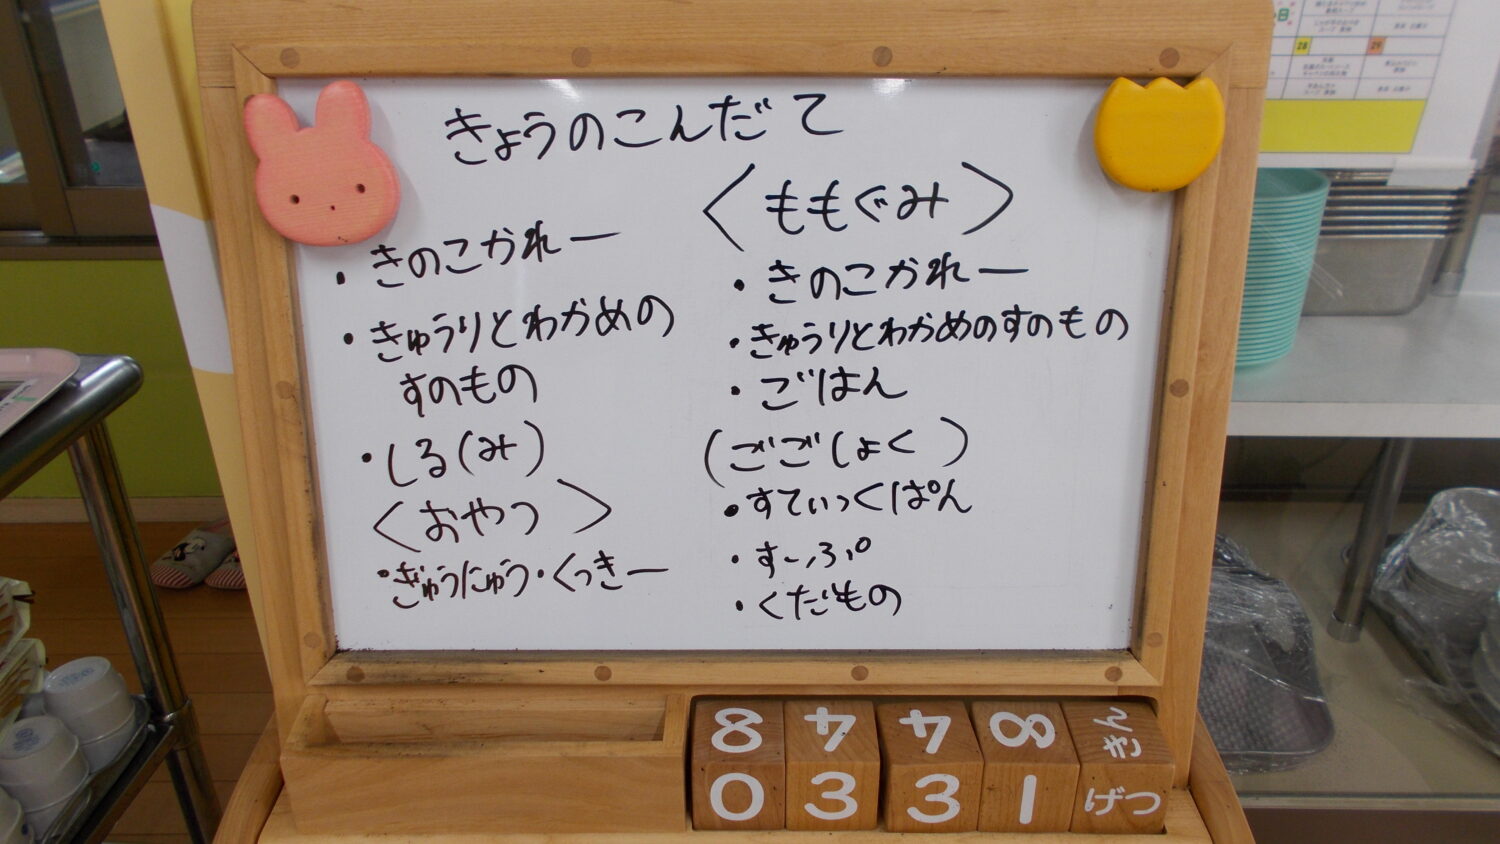 きょうのこんだて
・きのこかれー
・きゅうりとわかめの
すのもの
・しる(み)
〈おやつ〉
・ぎゅうにゅう・くっきー
〈ももぐみ〉
・きのこかれー
・きゅうりとわかめのすのもの
・ごはん
(ごごしょく)
・すてぃっくぱん
・すーぷ
・くだもの
8 4 4 8 きん
0 3 3 1 げつ
28
29